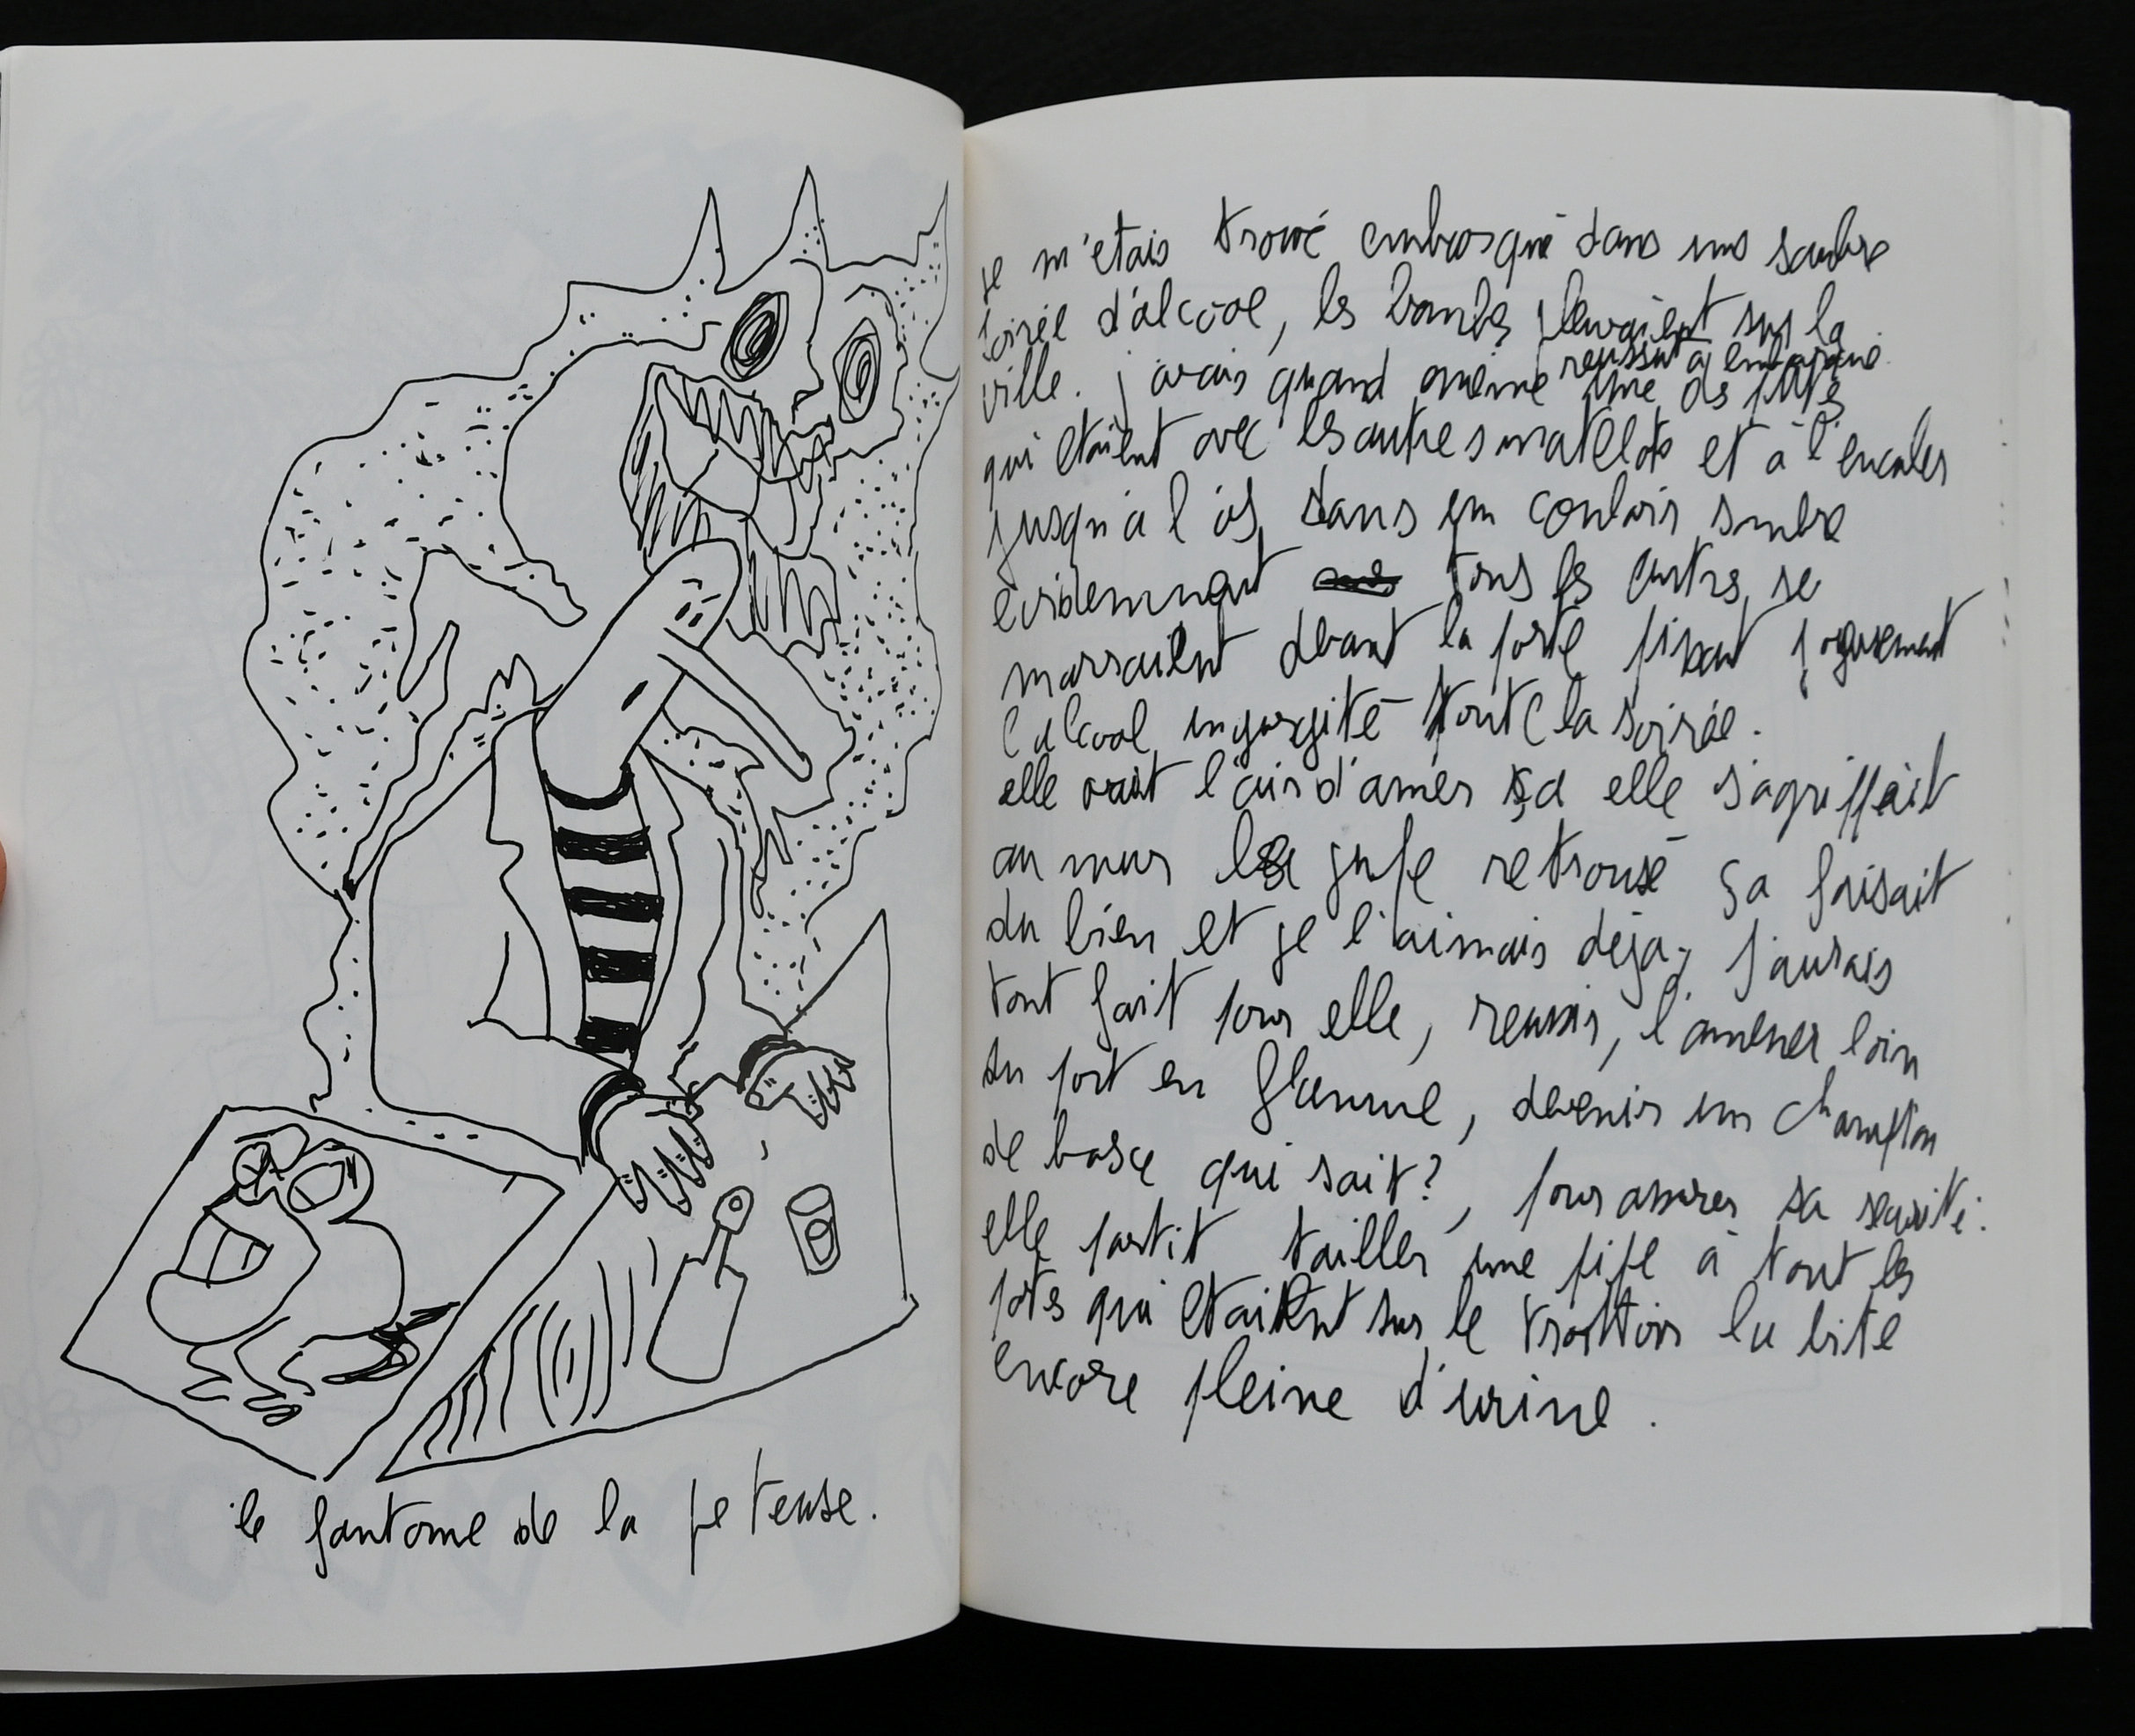 le fantome de la peteuse.
je m'etais trouvé embarqué dans une sombre
soirée d'alcool, les bombes pleuvaient sur la
ville. j'avais quand même reussit à embarqué une des putes
qui etaient avec les autres matelots et à l'enculer
jusqu'a l'os, dans un couloir sombre
evidemment tous les autres se
marraient devant la porte pissant
l'alcool ingurgité toute la soirée.
elle avait l'air d'aimer ça elle s'agriffait
au mur la jupe retroussé ça faisait
du bien et je l'aimais déjà, j'aurais
tout fait pour elle, reussir, l'amener loin
du port en flamme, devenir un champion
de boxe qui sait?, pour assurer sa securité.
elle partit tailler une pipe à tout les
potes qui etaient sur le trottoir la bite
encore pleine d'urine.